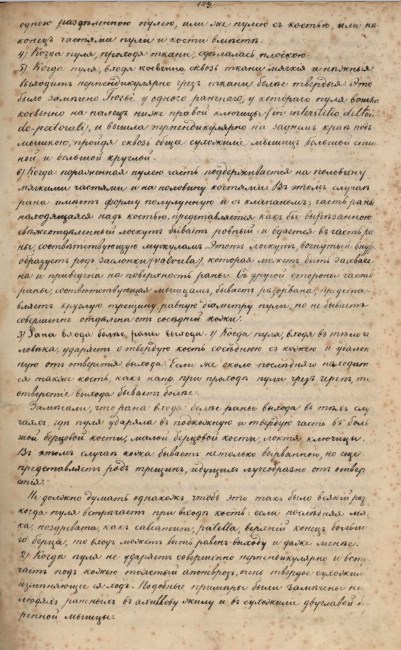 129
одною раздѣленною пулею, или же пулею съ костью, или на
конецъ частями пули и кости вмѣстѣ.
4) Когда пуля, проходя ткани, сдѣлалась плоскою.
5) Когда пуля, входя косвенно сквозь ткани мягкія и нѣжныя
выходитъ перпендикулярно чрезъ ткани болѣе твердыя. Это
было замѣчено у одного раненаго, у котораго пуля вошла
косвенно на палецъ ниже правой ключицы (in interstitio delto-
do-pectorali), и вышла перпендикулярно на заднемъ краѣ подъ
мышкою, пройдя сквозь общее сухожиліе мышцъ большой спин
ной и большой круглой.
6) Когда пораженная пулею часть поддерживается на половину
мягкими частями и на половину костями. Въ этомъ случаѣ
рана имѣетъ форму полулунную и съ клапаномъ; часть раны
находящаяся надъ костью, представляется какъ бы вырѣзанною
лоскутъ бываетъ ровный и въ часть ра
ны, соотвѣтствующую мускуламъ. Этотъ лоскутъ, вогнутый вну
образуетъ родъ заслонки (valvula), которая можетъ быть захваче
на и приведена на поверхность раны. Съ другой стороны часть
раны, соотвѣтствующая мышцамъ, бываетъ разорвана, предста
вляетъ круглую трещину, равную діаметру пули, но не бываетъ
совершенно отдѣлена отъ сосѣдней кожи.
3) Рана входа болѣе раны выхода. 1) Когда пуля, входя въ тѣло
ударяетъ о твердую кость сосѣднюю съ кожею и удален
ную отъ отверстія выхода. Если же около послѣдняго находит
ся также кость, какъ напр. при проходѣ пули чрезъ черепъ, то
отверстіе выхода бываетъ болѣе.
Замѣчали, что рана входа болѣе раны выхода въ тѣхъ слу
чаяхъ, гдѣ пуля ударяла въ подкожную и твердую часть боль
шой берцовой кости, малой берцовой кости, локтя, ключицы.
Въ этомъ случаѣ кожа бываетъ не только вырванною, но еще
представляетъ родъ трещинъ, идущихъ лучеобразно отъ отвер
стія.
Не должно думать однакожъ, чтобъ это такъ было всякій разъ
когда пуля встрѣчаетъ при входѣ кость: если послѣдняя мяг
ка, ноздревата, какъ calcaneum, patella, верхній конецъ больш
го берца, то входъ можетъ быть равенъ выходу и даже менѣе.
2) Когда пуля не ударяетъ совершенно перпендикулярно и встрѣ
часть подъ кожею толстый апоневрозъ, очень твердое сухожиліе
измѣняющее ея ходъ. Подобные примѣры были замѣчены на
людяхъ раненыхъ въ ахиллову жилу и въ сухожиліе двуглавой бед
ренной мышцы.